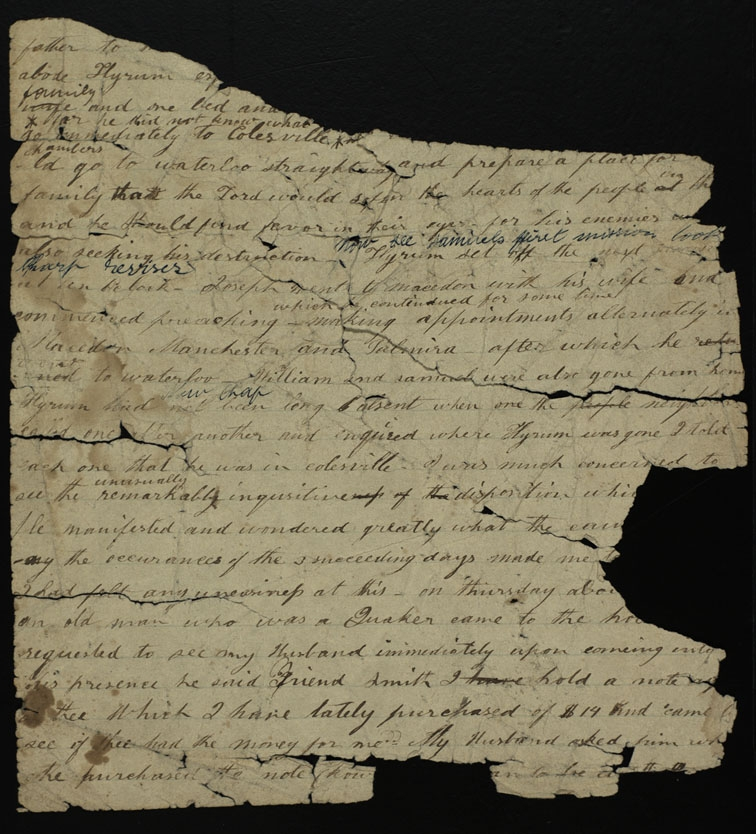 father to
above Hyrum
family
wife and one bed and
* for he did not know what
go immediately to Colesville *
chambers
ld go to waterloo straightway and prepare a place for
family that the Lord would soften the hearts of the people in
and he should find favor in their eyes for his enemies
Now see Samuels first mission look
also seeking his destruction - Hyrum set off the next
sharp reviser
o'clock - Joseph went to macedon with his wife and
which he continued for some time
commenced preaching - making appointments alternately in
Macedon Manchester and Palmira - after which he
ned to waterloo - William and samuel were also gone from home
new chap
Hyrum had not been long absent when one the people neighbors
called one after another and inquired where Hyrum was gone I told
each one that he was in colesville - I was much concerned to
unusually
see the remarkably inquisitiveness of the disposition whi
manifested and wondered greatly what the
the occurances of the succeeding days made me t
I had felt any uneasiness at this - on thursday abou
an old man who was a Quaker came to the ho
requested to see my Husband immediately upon comeing into
his presence he said Friend Smith I have hold a note
thee Which I have lately purchased of $14 And came
see if thee had the money for me My Husband asked him wh
he purchased the note